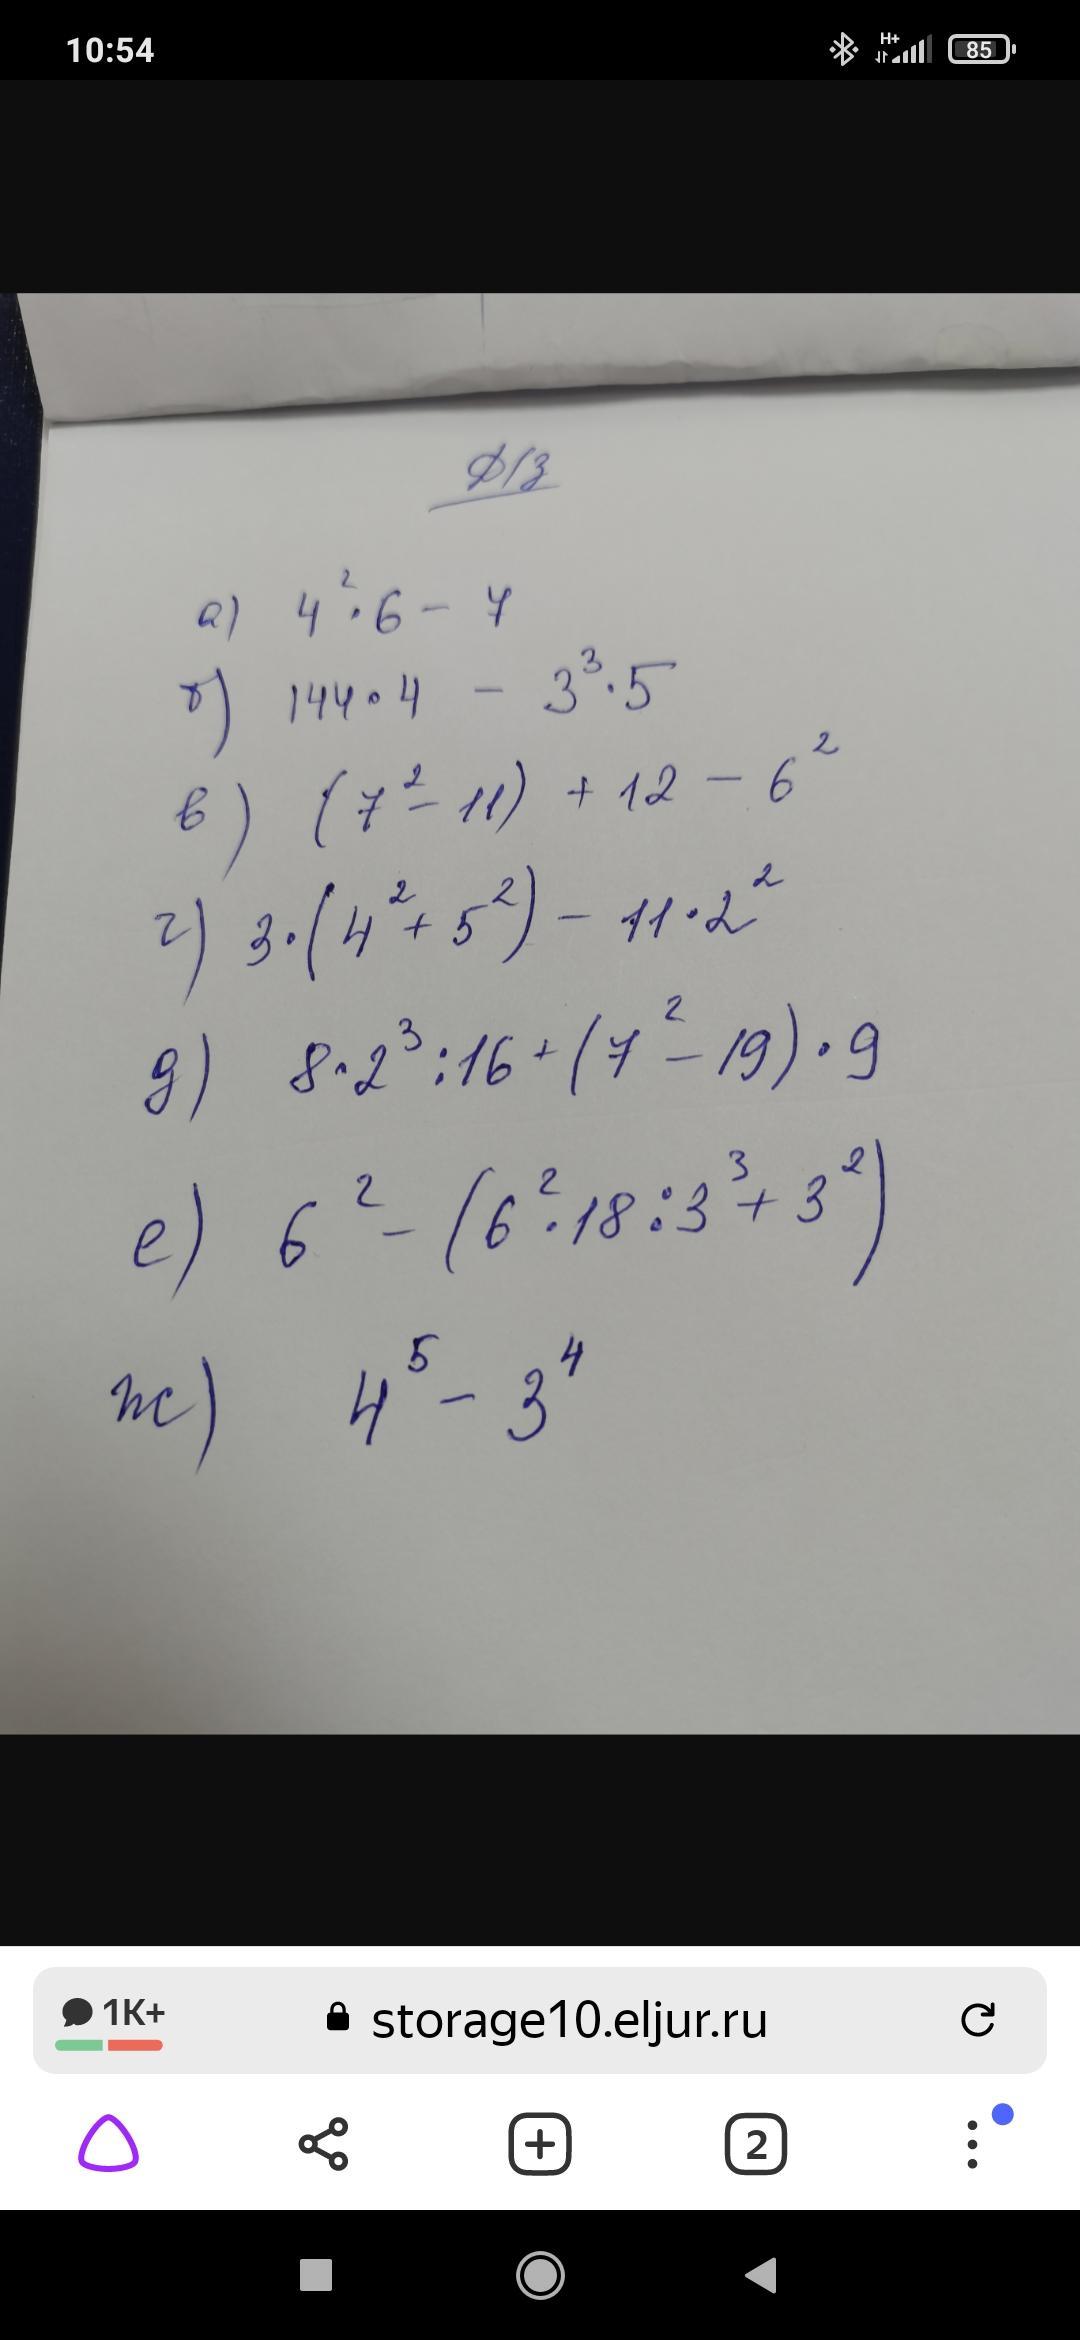 10:54
H+
85
Д/з
а) 4²·6 – 7
б) 144·4 – 3³·5
в) (7² – 11) + 12 – 6²
г) 3·(4² + 5²) – 11·2²
д) 8·2³:16 + (7² – 19)·9
е) 6² – (6²·18:3³ + 3²)
ж) 4⁵ – 3⁴
1K+
storage10.eljur.ru
2